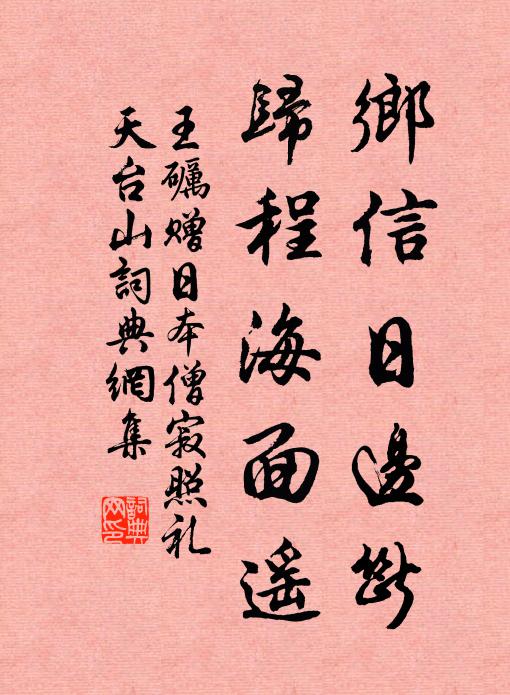 鄉信日邊斷
歸程海面遥
王礪贈日本僧寂照礼
天台山詞典網集
詞典
网印